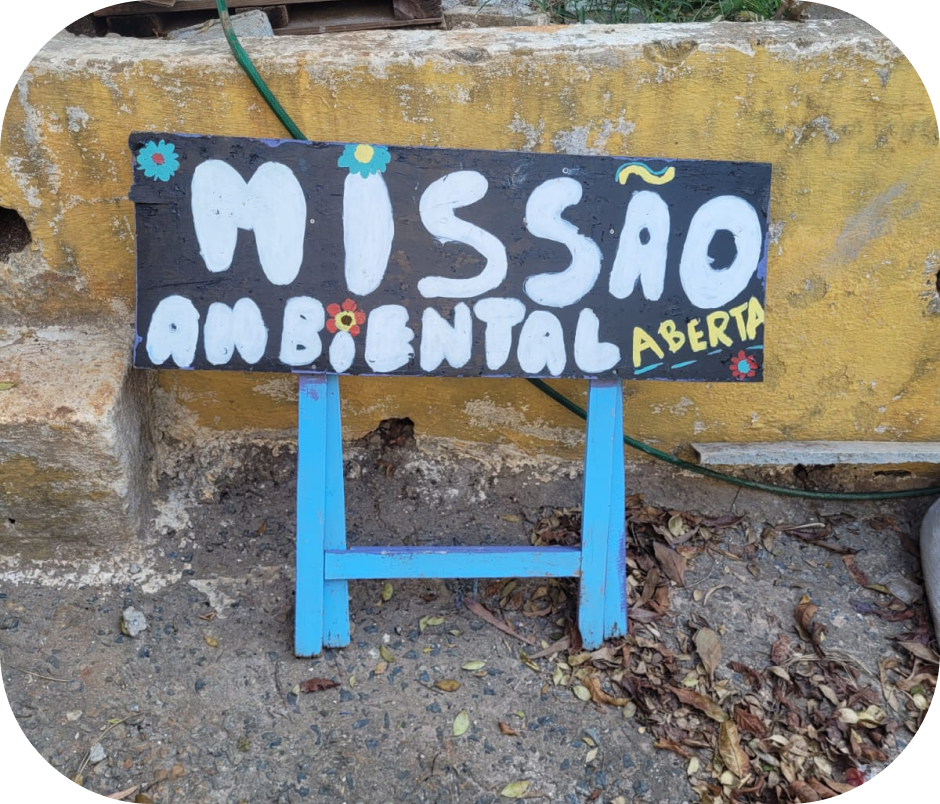 MISSÃO
AMBIENTAL ABERTA